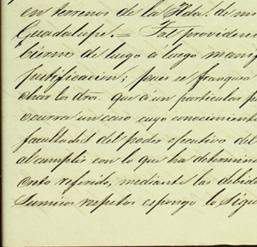 en terrenos de la Hda. de
Guadalupe.= Tal providen
bierno de luego á luego mani
justificacion; pues se franquea
otros. que á un particular p
ocurra un caso cuyo conocimiento
facultad del poder ejecutivo del
al cumplir con lo que ha determin
referido, mediante la debida
respetos espongo lo sigu